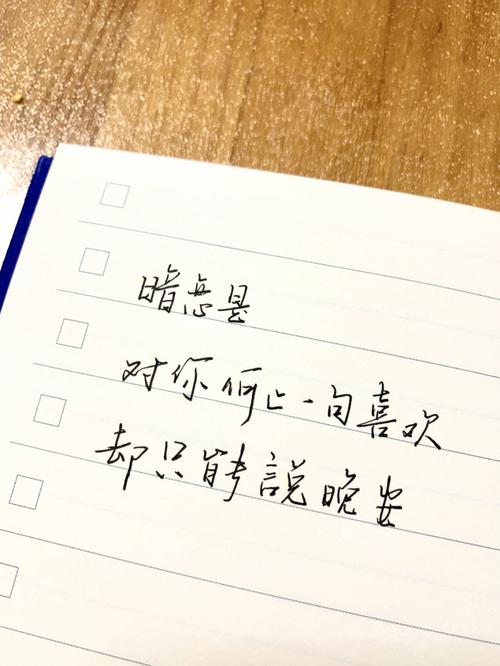 暗恋是
对你何止一句喜欢
却只能說晚安